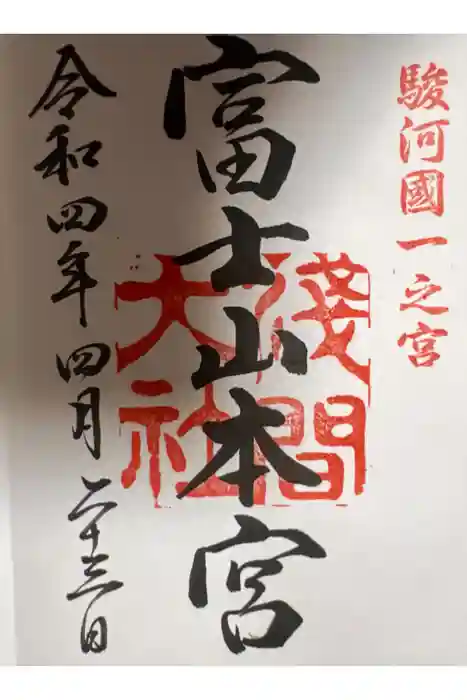 駿河國一之宮
富士山本宮
淺間大社
令和四年四月二十三日